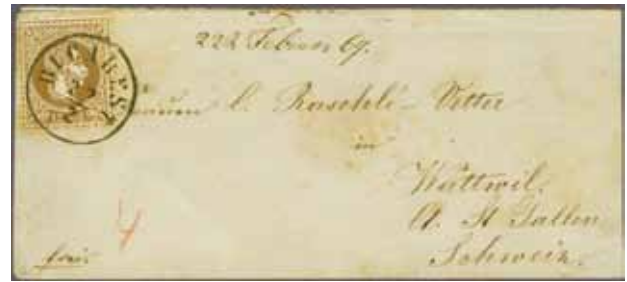 BUCAREST
222 Februar 69.
Raschle-Vetter
in
Wattwil.
Ct. St Gallen
Schweiz.
4